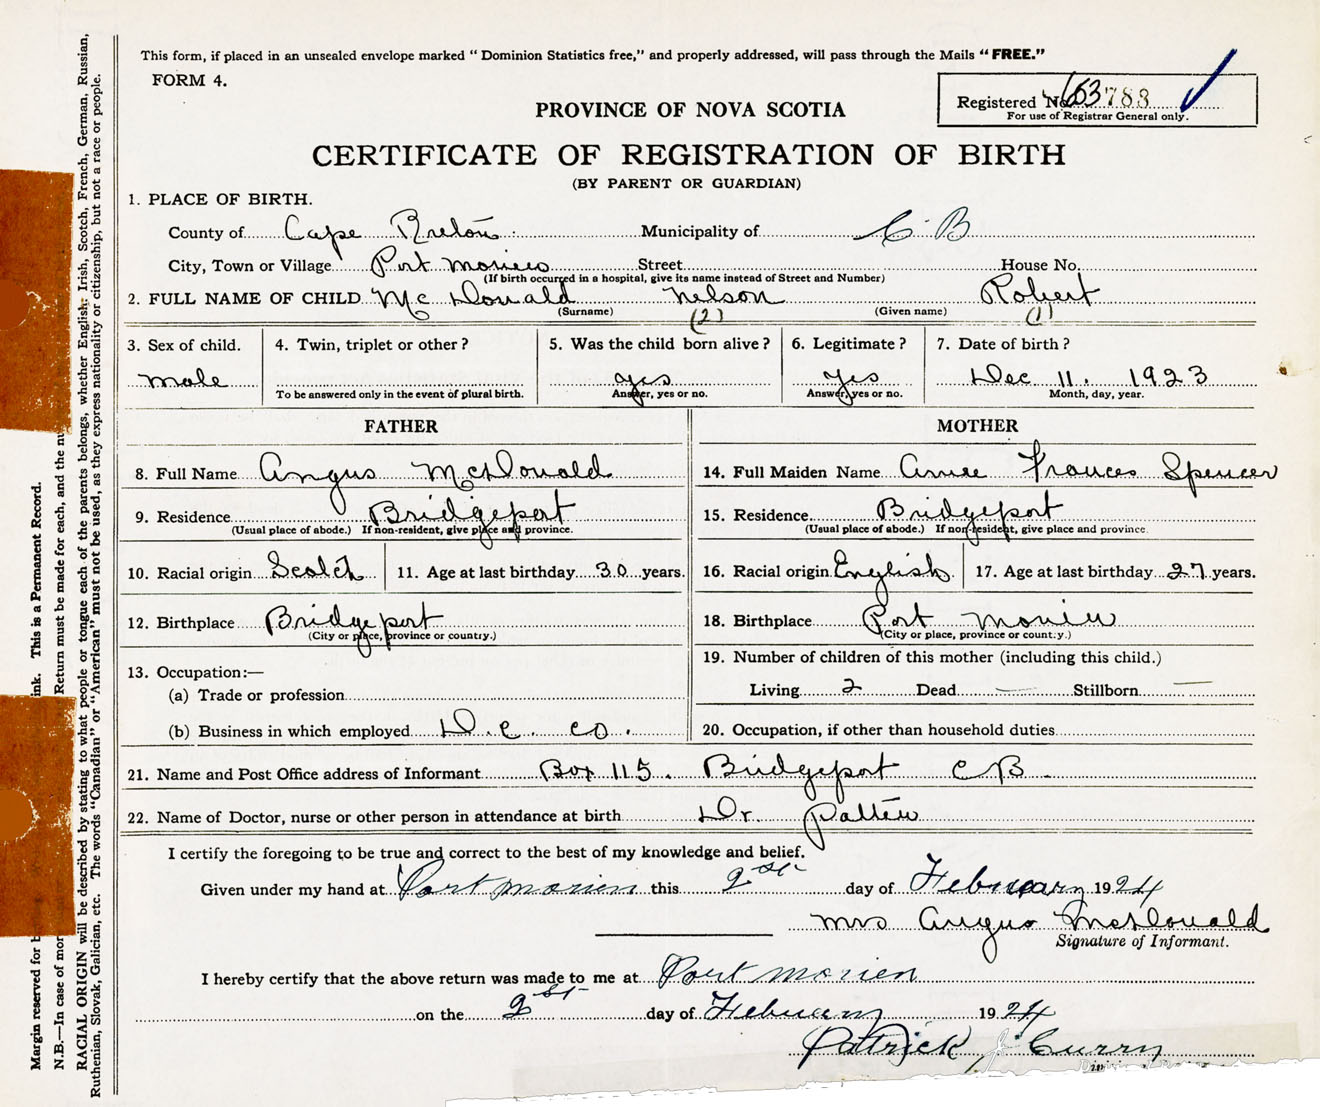 This form, if placed in an unsealed envelope marked “ Dominion Statistics free,” and properly addressed, will pass through the Mails “ FREE.”
FORM 4.
Registered No. 63783
For use of Registrar General only.
PROVINCE OF NOVA SCOTIA
CERTIFICATE OF REGISTRATION OF BIRTH
(BY PARENT OR GUARDIAN)
1. PLACE OF BIRTH.
County of Cape Breton Municipality of C B
City, Town or Village Port Morien Street House No.
(If birth occurred in a hospital, give its name instead of Street and Number)
2. FULL NAME OF CHILD McDonald Nelson Robert
(Surname) (2) (Given name) (1)
3. Sex of child. 4. Twin, triplet or other ? 5. Was the child born alive ? 6. Legitimate ? 7. Date of birth ?
male yes yes Dec 11. 1923
To be answered only in the event of plural birth. Answer, yes or no. Answer, yes or no. Month, day, year.
FATHER MOTHER
8. Full Name Angus McDonald 14. Full Maiden Name Frances Spencer
9. Residence Bridgeport 15. Residence Bridgeport
(Usual place of abode.) If non-resident, give place and province. (Usual place of abode.) If non-resident, give place and province.
10. Racial origin Scotch 11. Age at last birthday 30 years. 16. Racial origin English 17. Age at last birthday 27 years.
12. Birthplace Bridgeport 18. Birthplace Port Morien
(City or place, province or country.) (City or place, province or country.)
13. Occupation:— 19. Number of children of this mother (including this child.)
(a) Trade or profession Living 2 Dead — Stillborn —
(b) Business in which employed D. C. Co. 20. Occupation, if other than household duties
21. Name and Post Office address of Informant Box 115. Bridgeport C B.
22. Name of Doctor, nurse or other person in attendance at birth Dr. Patten
I certify the foregoing to be true and correct to the best of my knowledge and belief.
Given under my hand at Port Morien this 2st day of February 1924
Mrs Angus McDonald
Signature of Informant.
I hereby certify that the above return was made to me at Port Morien
on the 2st day of February 1924
Patrick J Curry
Margin reserved for ink. This is a Permanent Record.
N.B.—In case of mor Return must be made for each, and the nu
RACIAL ORIGIN will be described by stating to what people or tongue each of the parents belongs, whether English, Irish, Scotch, French, German, Russian,
Ruthenian, Slovak, Galician, etc. The words “Canadian” or “American” must not be used, as they express nationality or citizenship, but not a race or people.